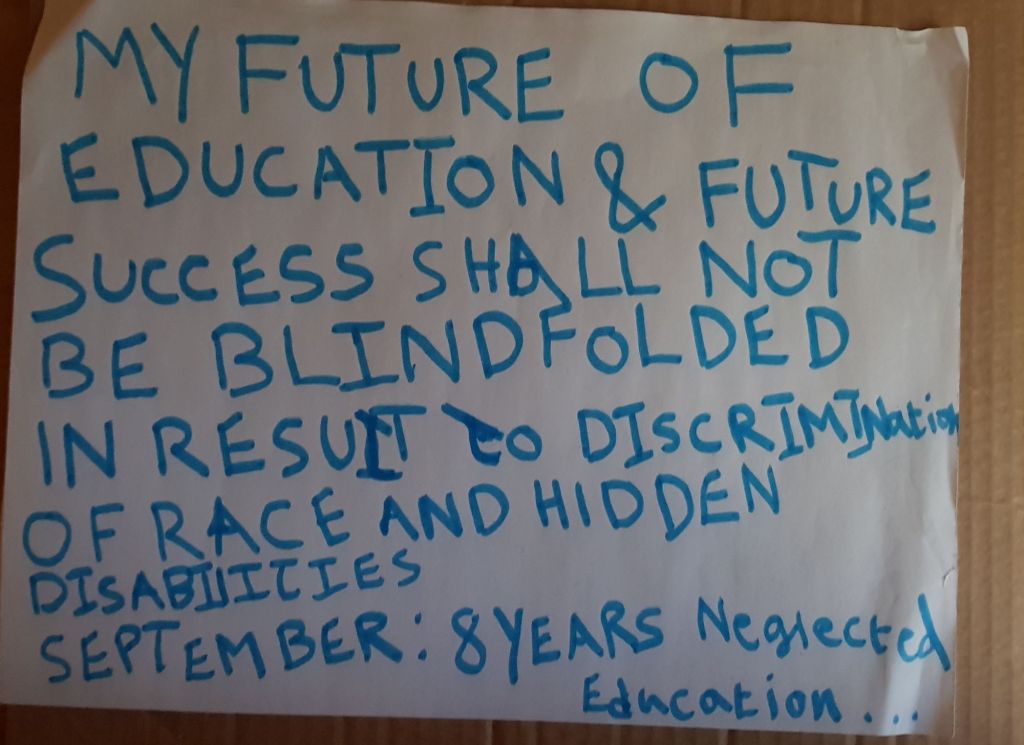 MY FUTURE OF
EDUCATION & FUTURE
SUCCESS SHALL NOT
BE BLINDFOLDED
IN RESULT to DISCRIMINation
OF RACE AND HIDDEN
DISABILITIES
SEPTEMBER: 8 YEARS Neglected
Education...